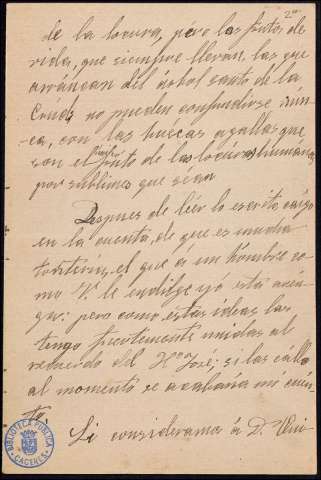 2ª
de la locura, pero los frutos de
vida, que siempre llevan, los que
arráncan dél árbol santo de la
Cruz no pueden confundirse nún-
ca, con las huécas agallas que
son el fruto de las locuras humanas
por sublimes que séan
Despues de léer lo escrito cáigo
en la cuenta, de que es mucha
tontería, el que á un hómbre co-
mo V. le endilge yó esta arén-
ga: pero como estas ideas las
tengo fuertemente unidas al
recuerdo del Hno José; si las cállo
al momento se acabaría mi cuén-
to.
Si consideramos á D.
BIBLIOTECA PUBLICA
CACERES